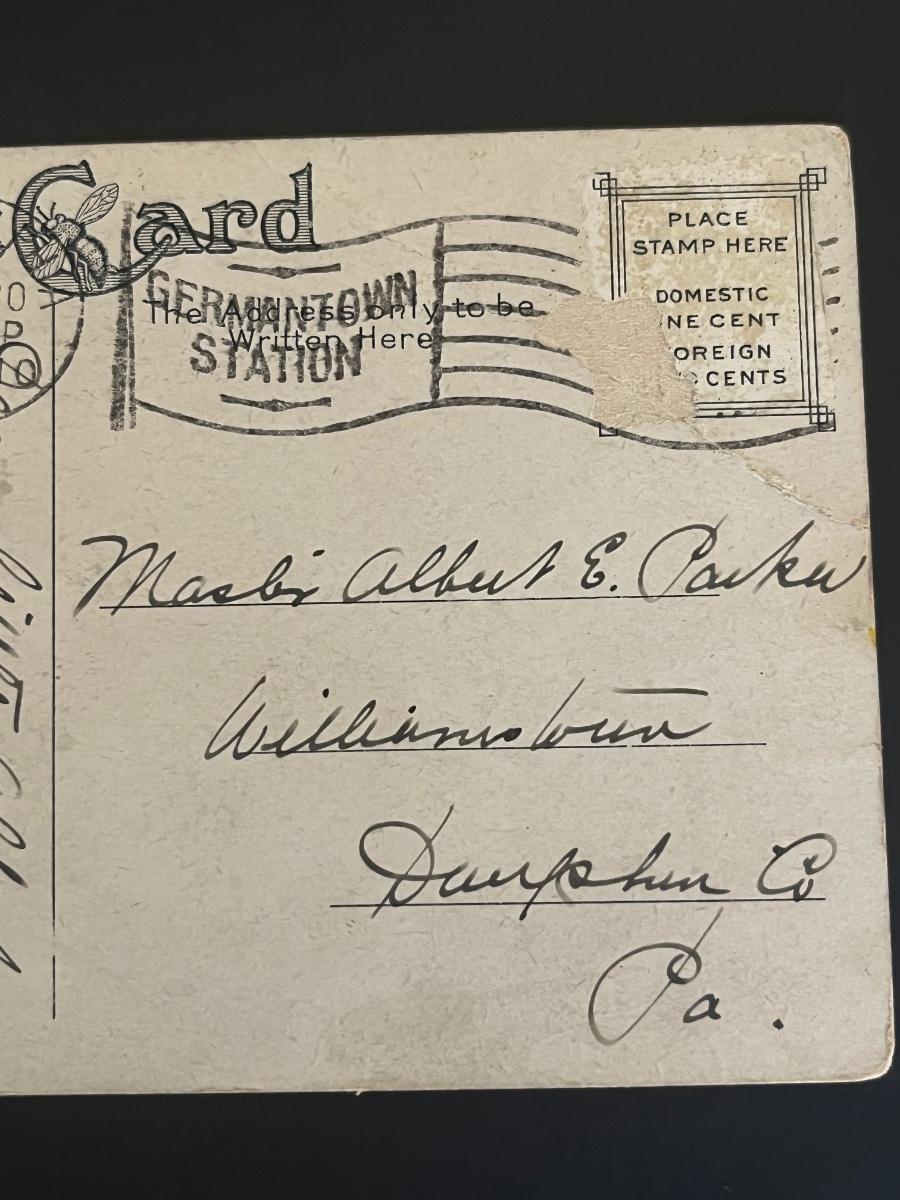 Card
GERMANTOWN
STATION
The Address only to be
Written Here
PLACE
STAMP HERE
DOMESTIC
NE CENT
OREIGN
CENTS
Master Albert E. Parker
Williamstown
Dauphin Co
Pa.